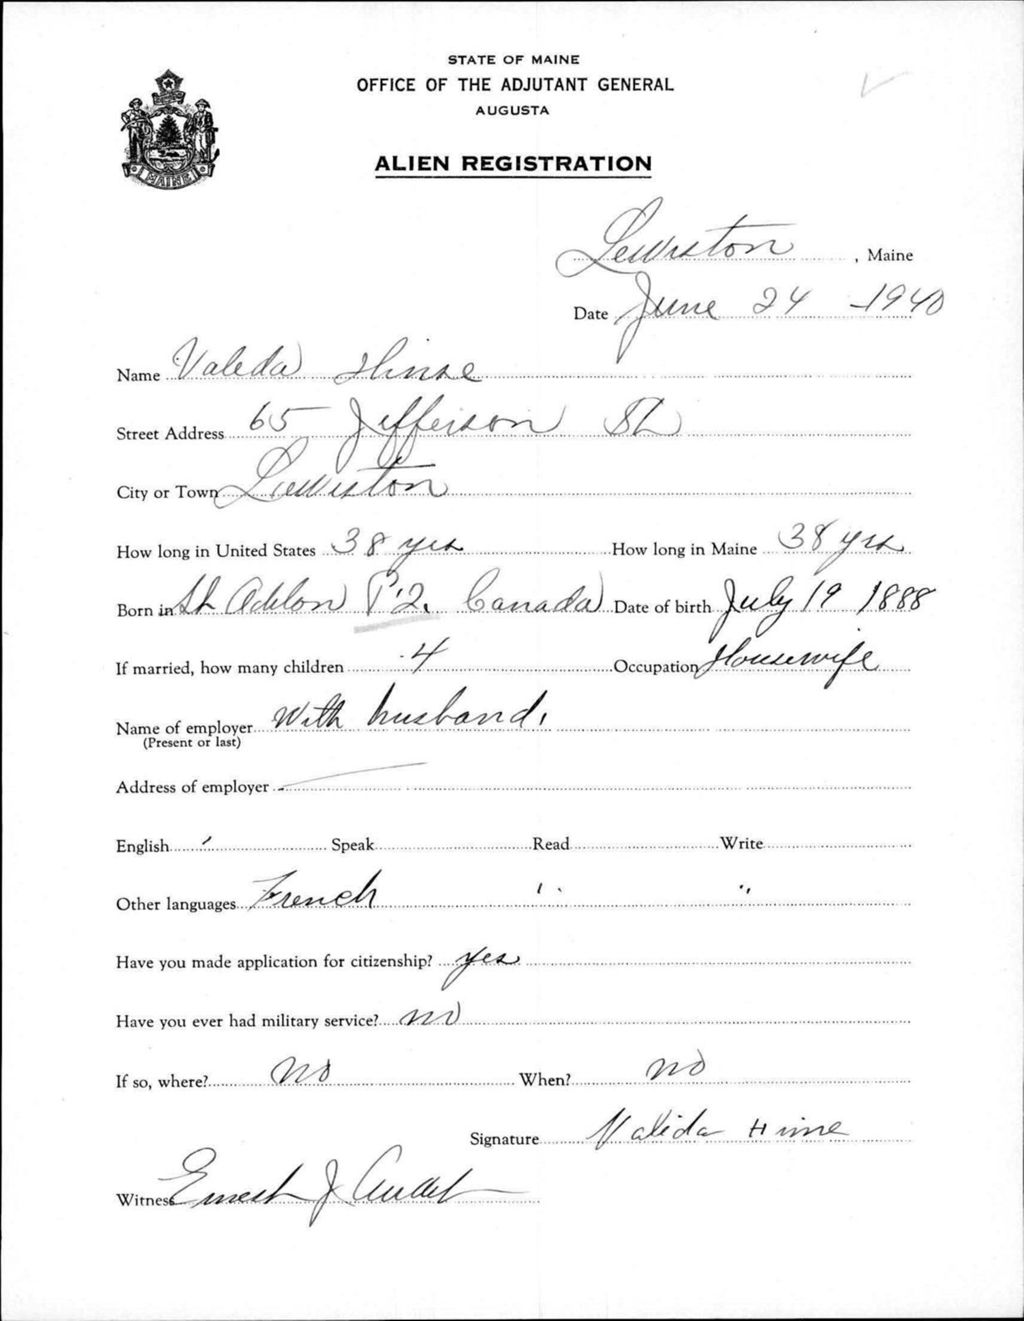 STATE OF MAINE
OFFICE OF THE ADJUTANT GENERAL
AUGUSTA
ALIEN REGISTRATION
MAINE
Lewiston, Maine
Date June 24 -1940
Name Valeda Hinse
Street Address 65 Jefferson St
City or Town Lewiston
How long in United States 38 yrs How long in Maine 38 yrs
Born in St P.Q. Canada Date of birth July 19 1888
If married, how many children 4 Occupation Housewife
Name of employer With husband.
(Present or last)
Address of employer -
English Speak Read Write
Other languages French " "
Have you made application for citizenship? yes
Have you ever had military service? no
If so, where? no When? no
Signature Valida
Witness Ernest J Audet